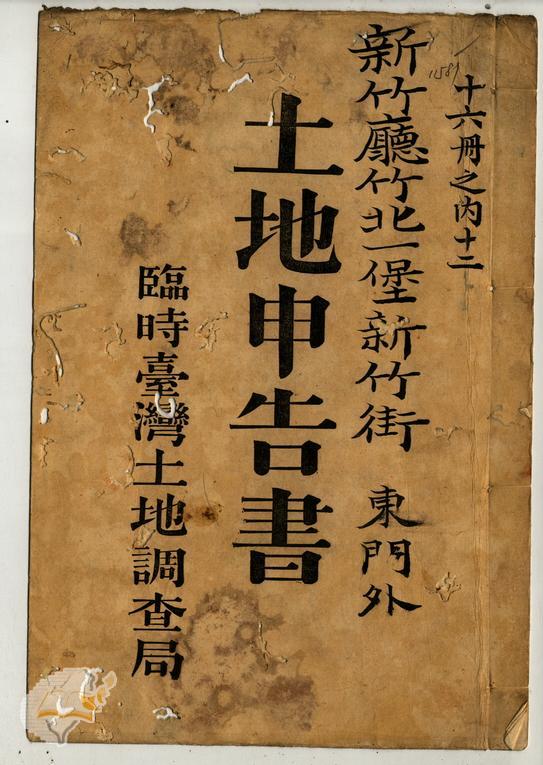 十六冊之內十二
1581
新竹廳竹北一堡新竹街 東門外
土地申告書
臨時臺灣土地調查局